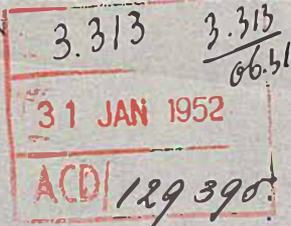 3.313 3.313
06.31
31 JAN 1952
ACD 129390